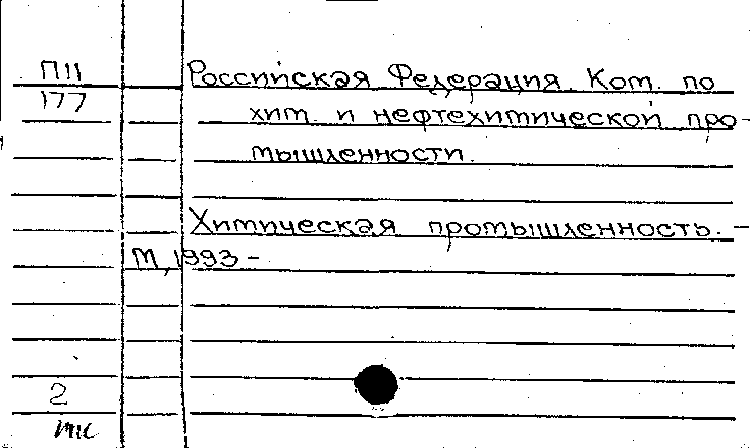 П11 Российская Федерация. Ком. по
177 хим. и нефтехимической про-
мышленности.
Химическая промышленность. –
М, 1993 –
2